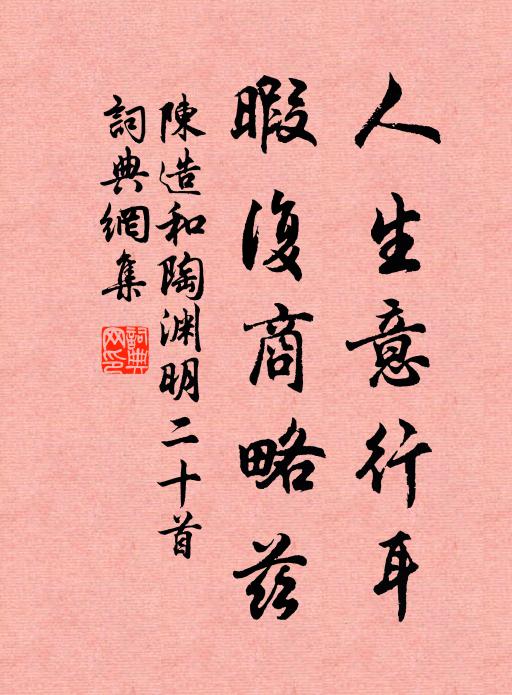 人生意行耳
暇復商略茲
陳造和陶淵明二十首
詞典網集
詞典網印